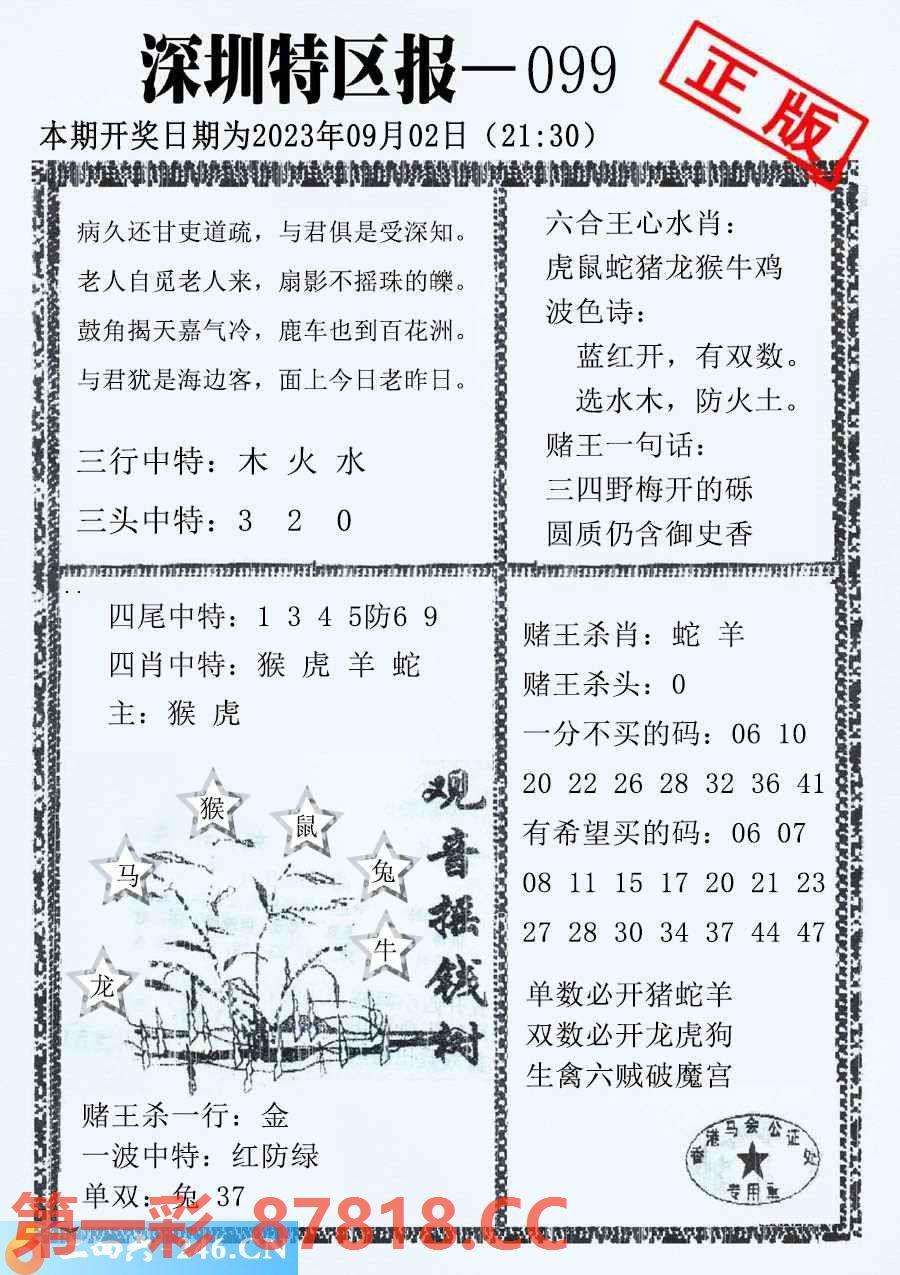 深圳特区报—099
正版
本期开奖日期为2023年09月02日（21:30）
病久还甘吏道疏，与君俱是受深知。
老人自觅老人来，扇影不摇珠的皪。
鼓角揭天嘉气冷，鹿车也到百花洲。
与君犹是海边客，面上今日老昨日。
三行中特：木 火 水
三头中特：3 2 0
六合王心水肖：
虎鼠蛇猪龙猴牛鸡
波色诗：
蓝红开，有双数。
选水木，防火土。
赌王一句话：
三四野梅开的砾
圆质仍含御史香
四尾中特：1 3 4 5防6 9
四肖中特：猴 虎 羊 蛇
主：猴 虎
猴
鼠
马
兔
牛
龙
观音摇钱树
赌王杀一行：金
一波中特：红防绿
单双：兔 37
赌王杀肖：蛇 羊
赌王杀头：0
一分不买的码：06 10
20 22 26 28 32 36 41
有希望买的码：06 07
08 11 15 17 20 21 23
27 28 30 34 37 44 47
单数必开猪蛇羊
双数必开龙虎狗
生禽六贼破魔宫
香港马会公证处
专用章
第一彩 87818.CC
246.CN